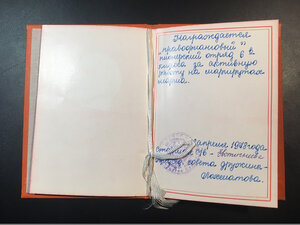 Награждается
правофланговый
пионерский отряд 6 в
класса за активную
работу на маршрутах
марша.
апреля 198 года
совета дружины